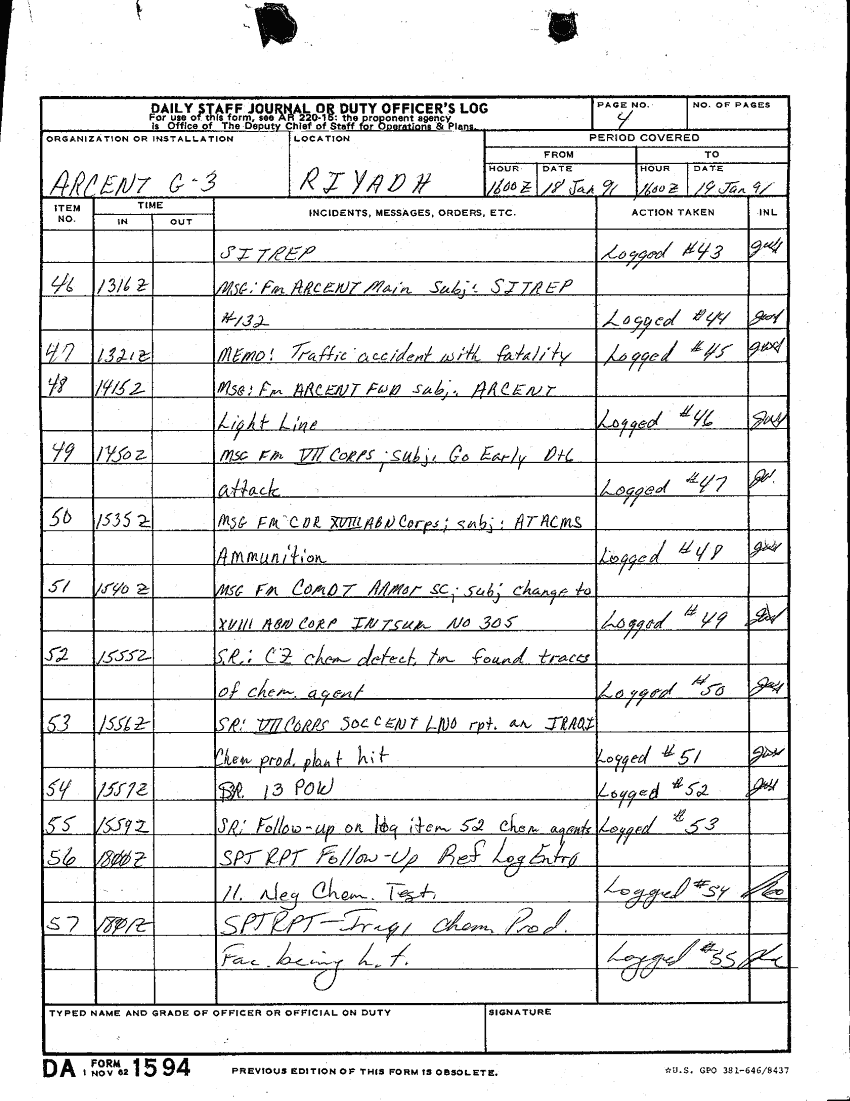 DAILY STAFF JOURNAL OR DUTY OFFICER'S LOG
For use of this form, see AR 220-15; the proponent agency
is Office of The Deputy Chief of Staff for Operations & Plans.
PAGE NO.
4
NO. OF PAGES
ORGANIZATION OR INSTALLATION
ARCENT G-3
LOCATION
RIYADH
PERIOD COVERED
FROM TO
HOUR DATE HOUR DATE
1600Z 18 Jan 91 1600Z 19 Jan 91
ITEM NO. TIME IN OUT INCIDENTS, MESSAGES, ORDERS, ETC. ACTION TAKEN INL
SITREP Logged #43
46 1316Z MSG: Fm ARCENT Main Subj: SITREP
#132 Logged #44
47 1321Z MEMO: Traffic accident with fatality Logged #45
48 1415Z MSG: Fm ARCENT FWD subj: ARCENT
Light Line Logged #46
49 1450Z MSG FM VII CORPS; subj: Go Early D+6
attack Logged #47
50 1535Z MSG FM CDR XVIII ABN Corps; subj: ATACMS
Ammunition Logged #48
51 1540Z MSG FM COMDT ARMOR SC; subj change to
XVIII ABN CORP INTSUM NO 305 Logged #49
52 1555Z S.R.: CZ chem detect. tm found traces
of chem. agent Logged #50
53 1556Z SR: VII CORPS SOCCENT LNO rpt. an IRAQI
Chem prod. plant hit Logged #51
54 1559Z SR. 13 POW Logged #52
55 1559Z SR: Follow-up on log item 52 chem agents Logged #53
56 1800Z SPT RPT Follow-Up Ref Log Entry
11. Neg Chem. Test. Logged #54
57 1801Z SPT RPT-Iraqi Chem Prod.
Fac. being hit. Logged #55
TYPED NAME AND GRADE OF OFFICER OR OFFICIAL ON DUTY SIGNATURE
DA FORM 1 NOV 62 1594 PREVIOUS EDITION OF THIS FORM IS OBSOLETE. ☆U.S. GPO 381-646/8437